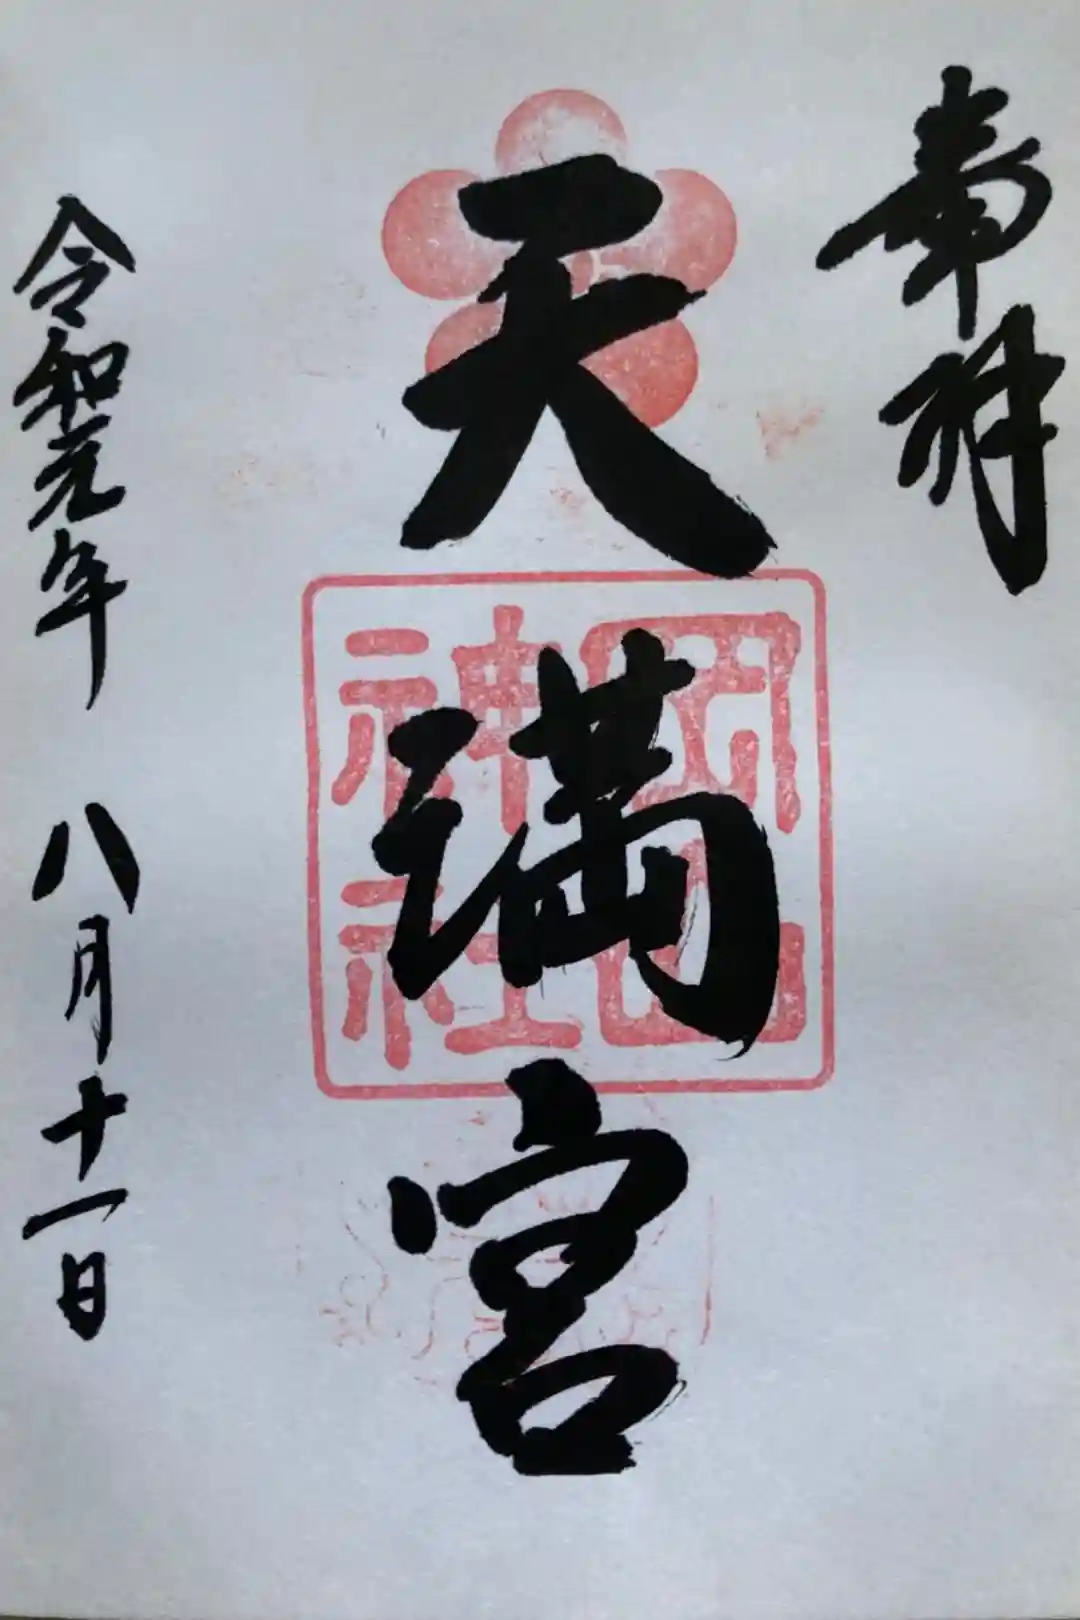 奉拝
天満宮
岡山神社
令和元年 八月十一日